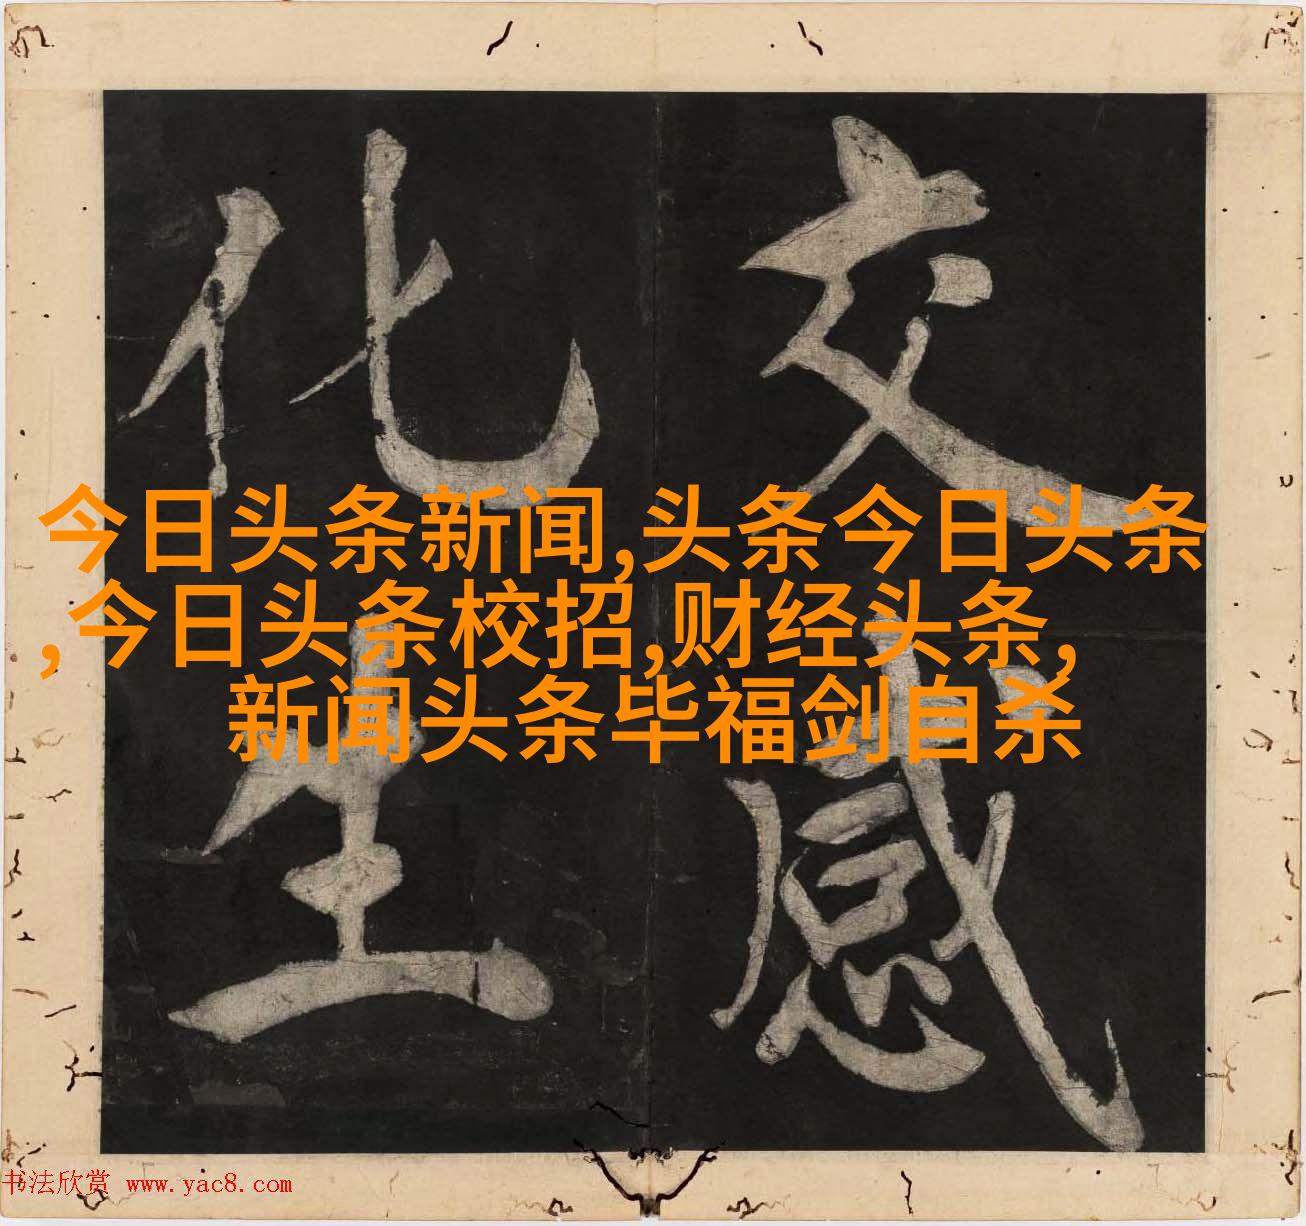 交感
化生
今日头条新闻,头条今日头条
,今日头条校招,财经头条,
新闻头条毕福剑自杀
书法欣赏 www.yac8.com